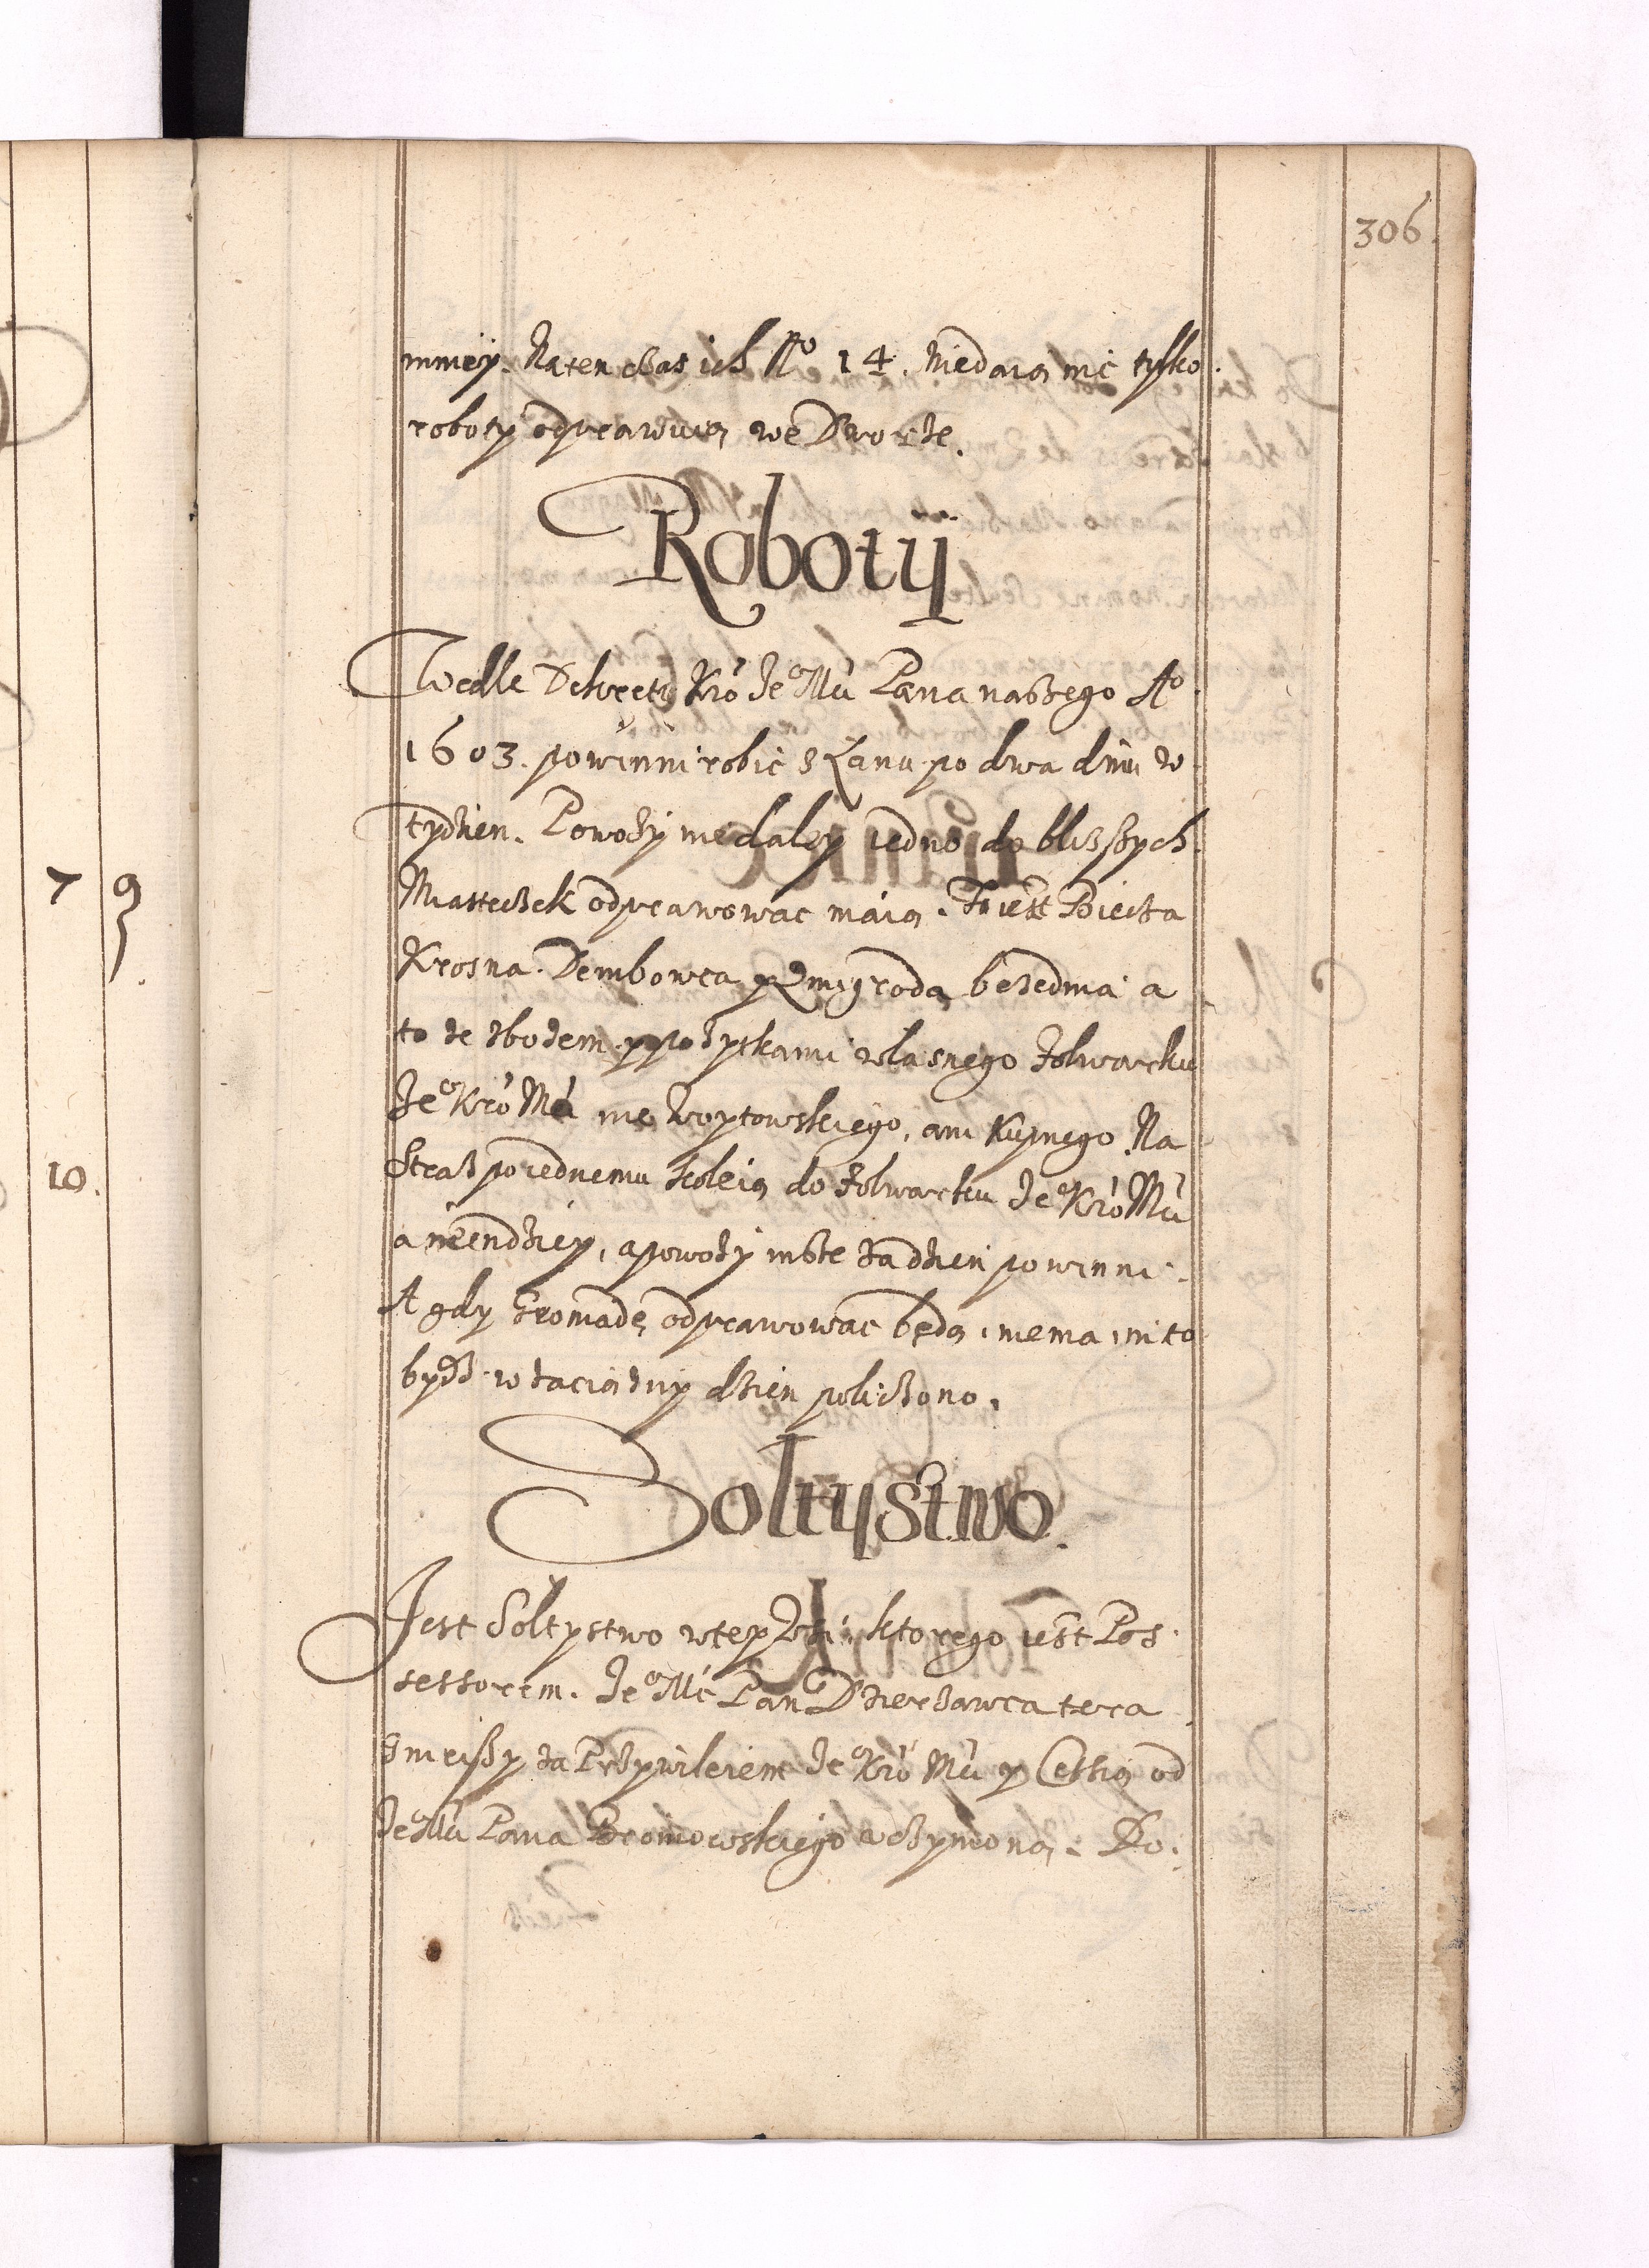 306.
mniey. Naten czas ich No 14. Niedaią nic tylko
roboty odprawuią we Dworze.
Robotÿ
Wedle Dekretu Kro Jeo Mci Pana naszego Ao
1603. powinni robić z Łanu po dwa dni w
tydzien. Powozy niedaley iedno do bliszszych
Miasteczek odprawować maią. To iest Biecza
Krosna. Dembowca y Zmigroda beze dnia a
to ze zbożem y pożytkami własnego folwarku
Jeo Kro Mci nie Woytowskiego, ani Kupnego. Na
Straż po iednemu koleią do folwarku Jeo Kro Mci
a nie indziey, a powozy insze za dzien powinni.
A gdy Gromadę odprawować będą, niema im to
bydź w zaciążny dzien policzono.
Soltÿstwo.
Jest Soltystwo wtey Wsi, ktorego iest Pos
sessorem. Jeo Mć Pan Dzierzawca tera
znieiszy za Przywileiem Jeo Kro Mci y Cessią od
Jeo Mci Pana Broniowskiego uczynioną. Do
7 9
10.